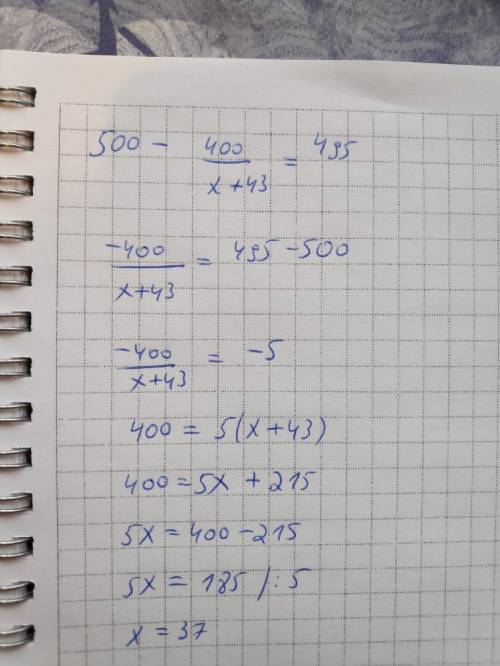 500 - 400/(x+43) = 495
-400/(x+43) = 495-500
-400/(x+43) = -5
400 = 5(x+43)
400 = 5x + 215
5x = 400-215
5x = 185 /:5
x = 37